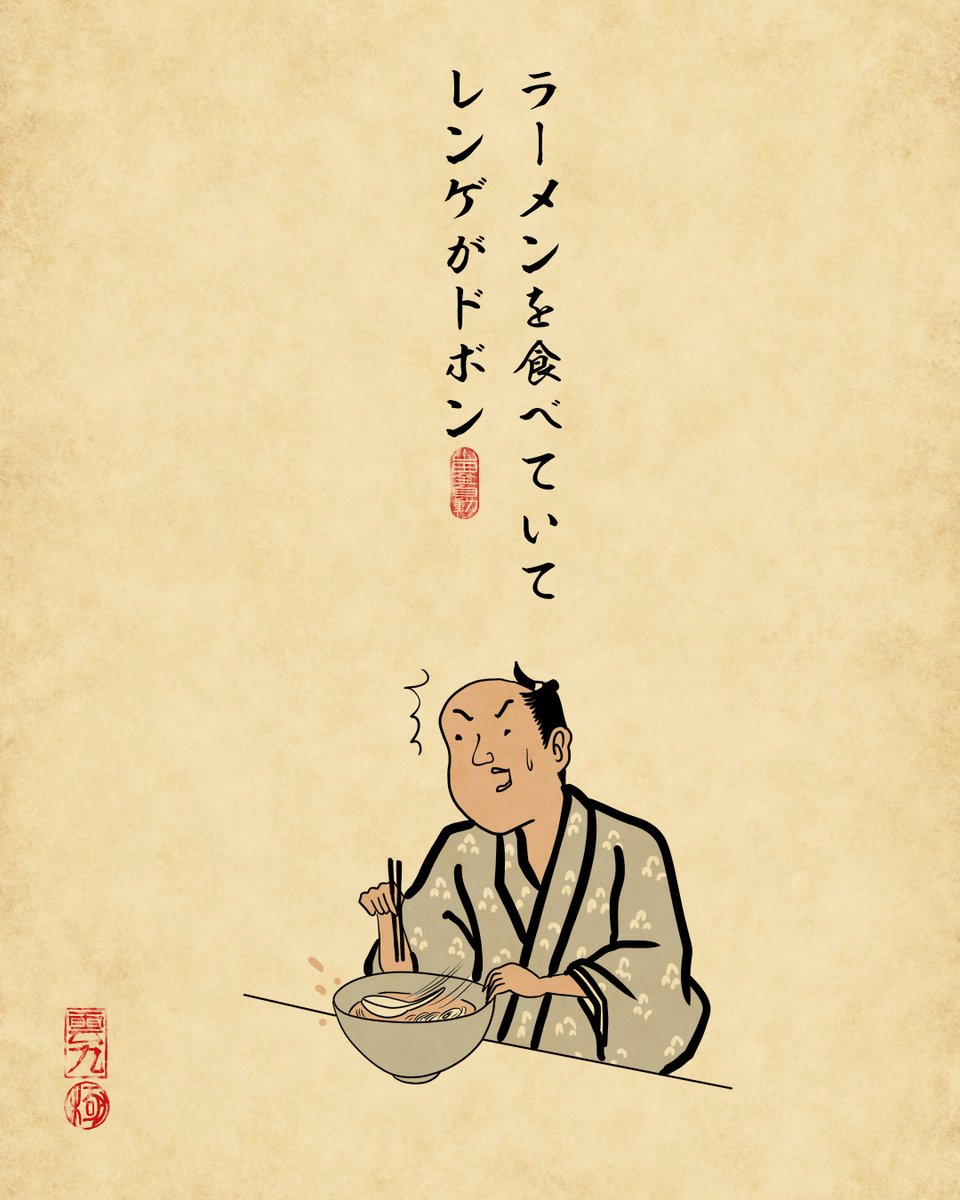 ラーメンを食べていて
レンゲがドボン